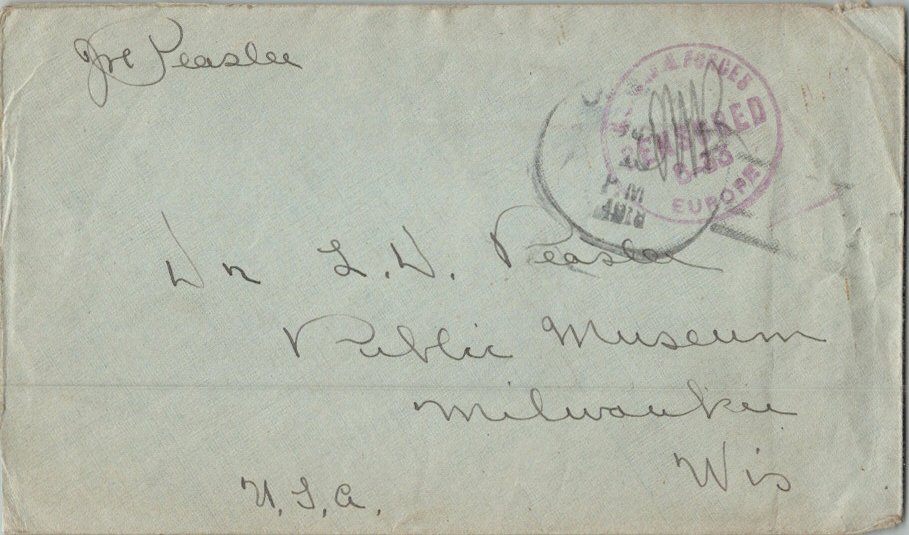 Jre Peaslee
U.S.N.A. FORCES
CENSORED
EUROPE
P M
Dr L. D. Peaslee
Public Museum
Milwaukee
Wis
U.S.A.